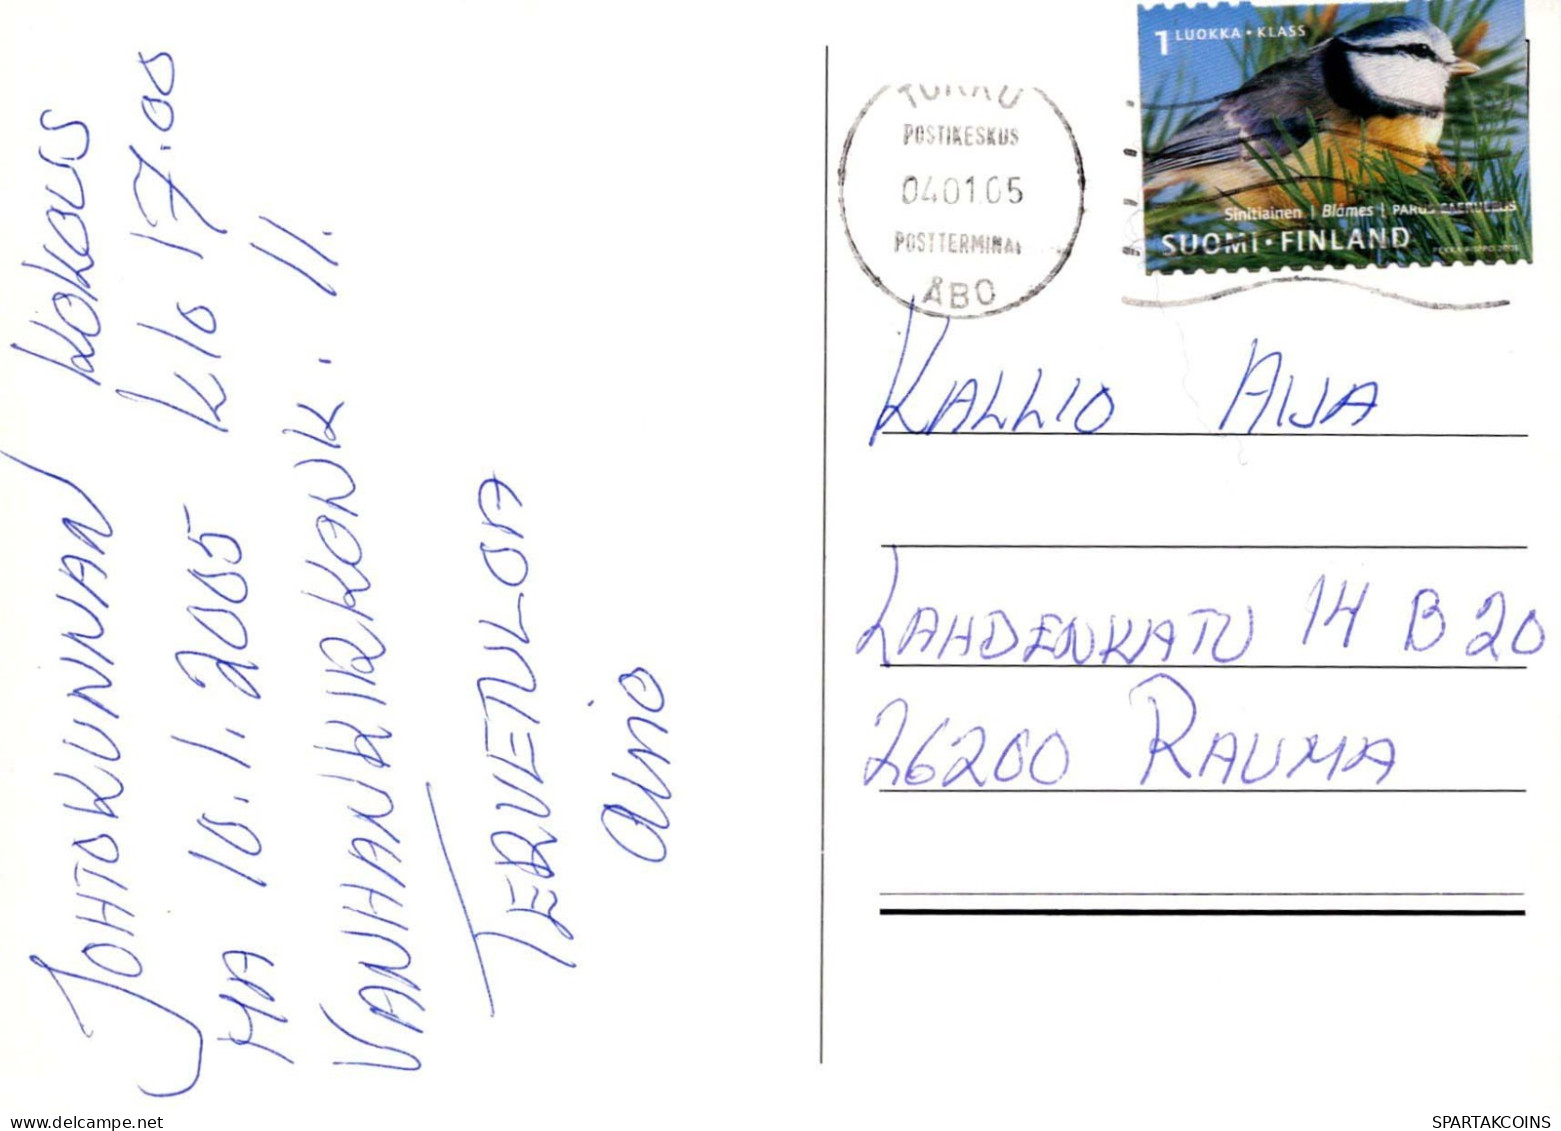 JOHTOKUNNAN KOKOUS
MA 10.1.2005 KLO 17.00
VANHANKIRKONK. 11.
TERVETULOA
AINO
TURKU
POSTIKESKUS
04.01.05
POSTTERMINAL
ÅBO
1 LUOKKA • KLASS
Sinitiainen | Blåmes | PARUS CAERULEUS
SUOMI • FINLAND
KALLIO AIJA
LAHDENKATU 14 B 20
26200 RAUMA
SPARTAKCOINS